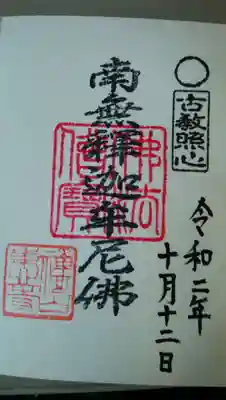 古教照心
令和二年
十月十二日
南無釋迦牟尼佛
佛法僧寳